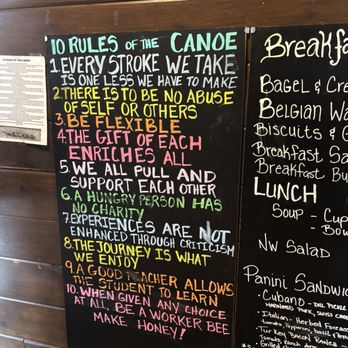 10 RULES OF THE CANOE
1. EVERY STROKE WE TAKE
IS ONE LESS WE HAVE TO MAKE
2. THERE IS TO BE NO ABUSE
OF SELF OR OTHERS
3. BE FLEXIBLE
4. THE GIFT OF EACH
ENRICHES ALL
5. WE ALL PULL AND
SUPPORT EACH OTHER
6. A HUNGRY PERSON HAS
NO CHARITY
7. EXPERIENCES ARE NOT
ENHANCED THROUGH CRITICISM
8. THE JOURNEY IS WHAT
WE ENJOY
9. A GOOD TEACHER ALLOWS
THE STUDENT TO LEARN
10. WHEN GIVEN ANY CHOICE
AT ALL, BE A WORKER BEE
MAKE HONEY!
Breakfa
Bagel & Cre
Belgian Wa
Biscuits & G
Breakfast Sa
Breakfast Bu
LUNCH
Soup - Cup
Bow
NW Salad
Panini Sandwic
- Cubano - Dill Pickle
- Italian - Herbed Focac
- Turkey Bacon Ranch